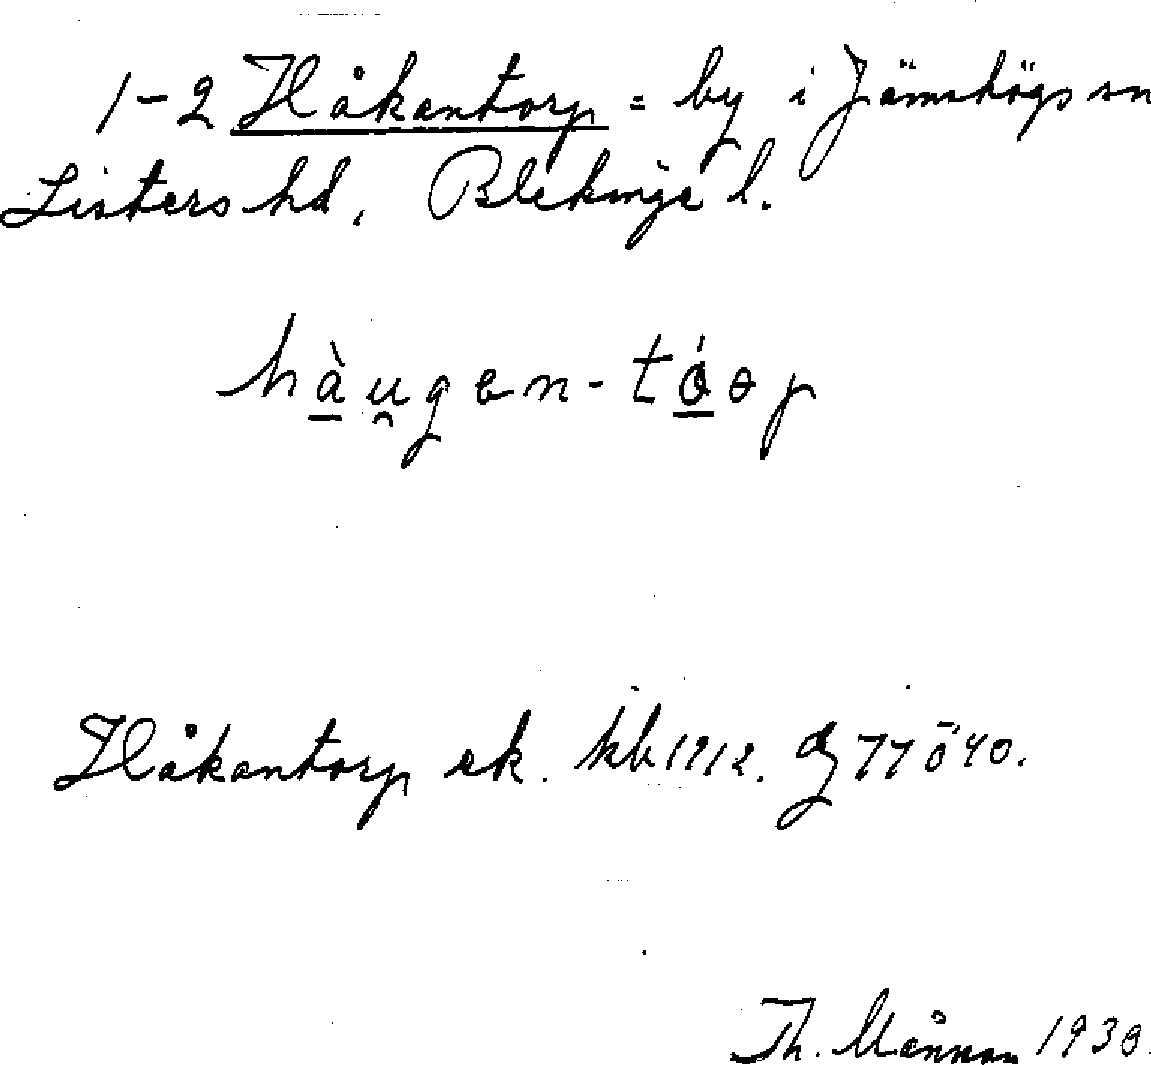 1-2 Håkantorp = by i Jämshögs sn
Listers hd, Blekinge l.
hàu̯gen-tóɵp
Håkantorp ek. kb 1912. GJ 77 ö 40.
Th. Månson 1930.